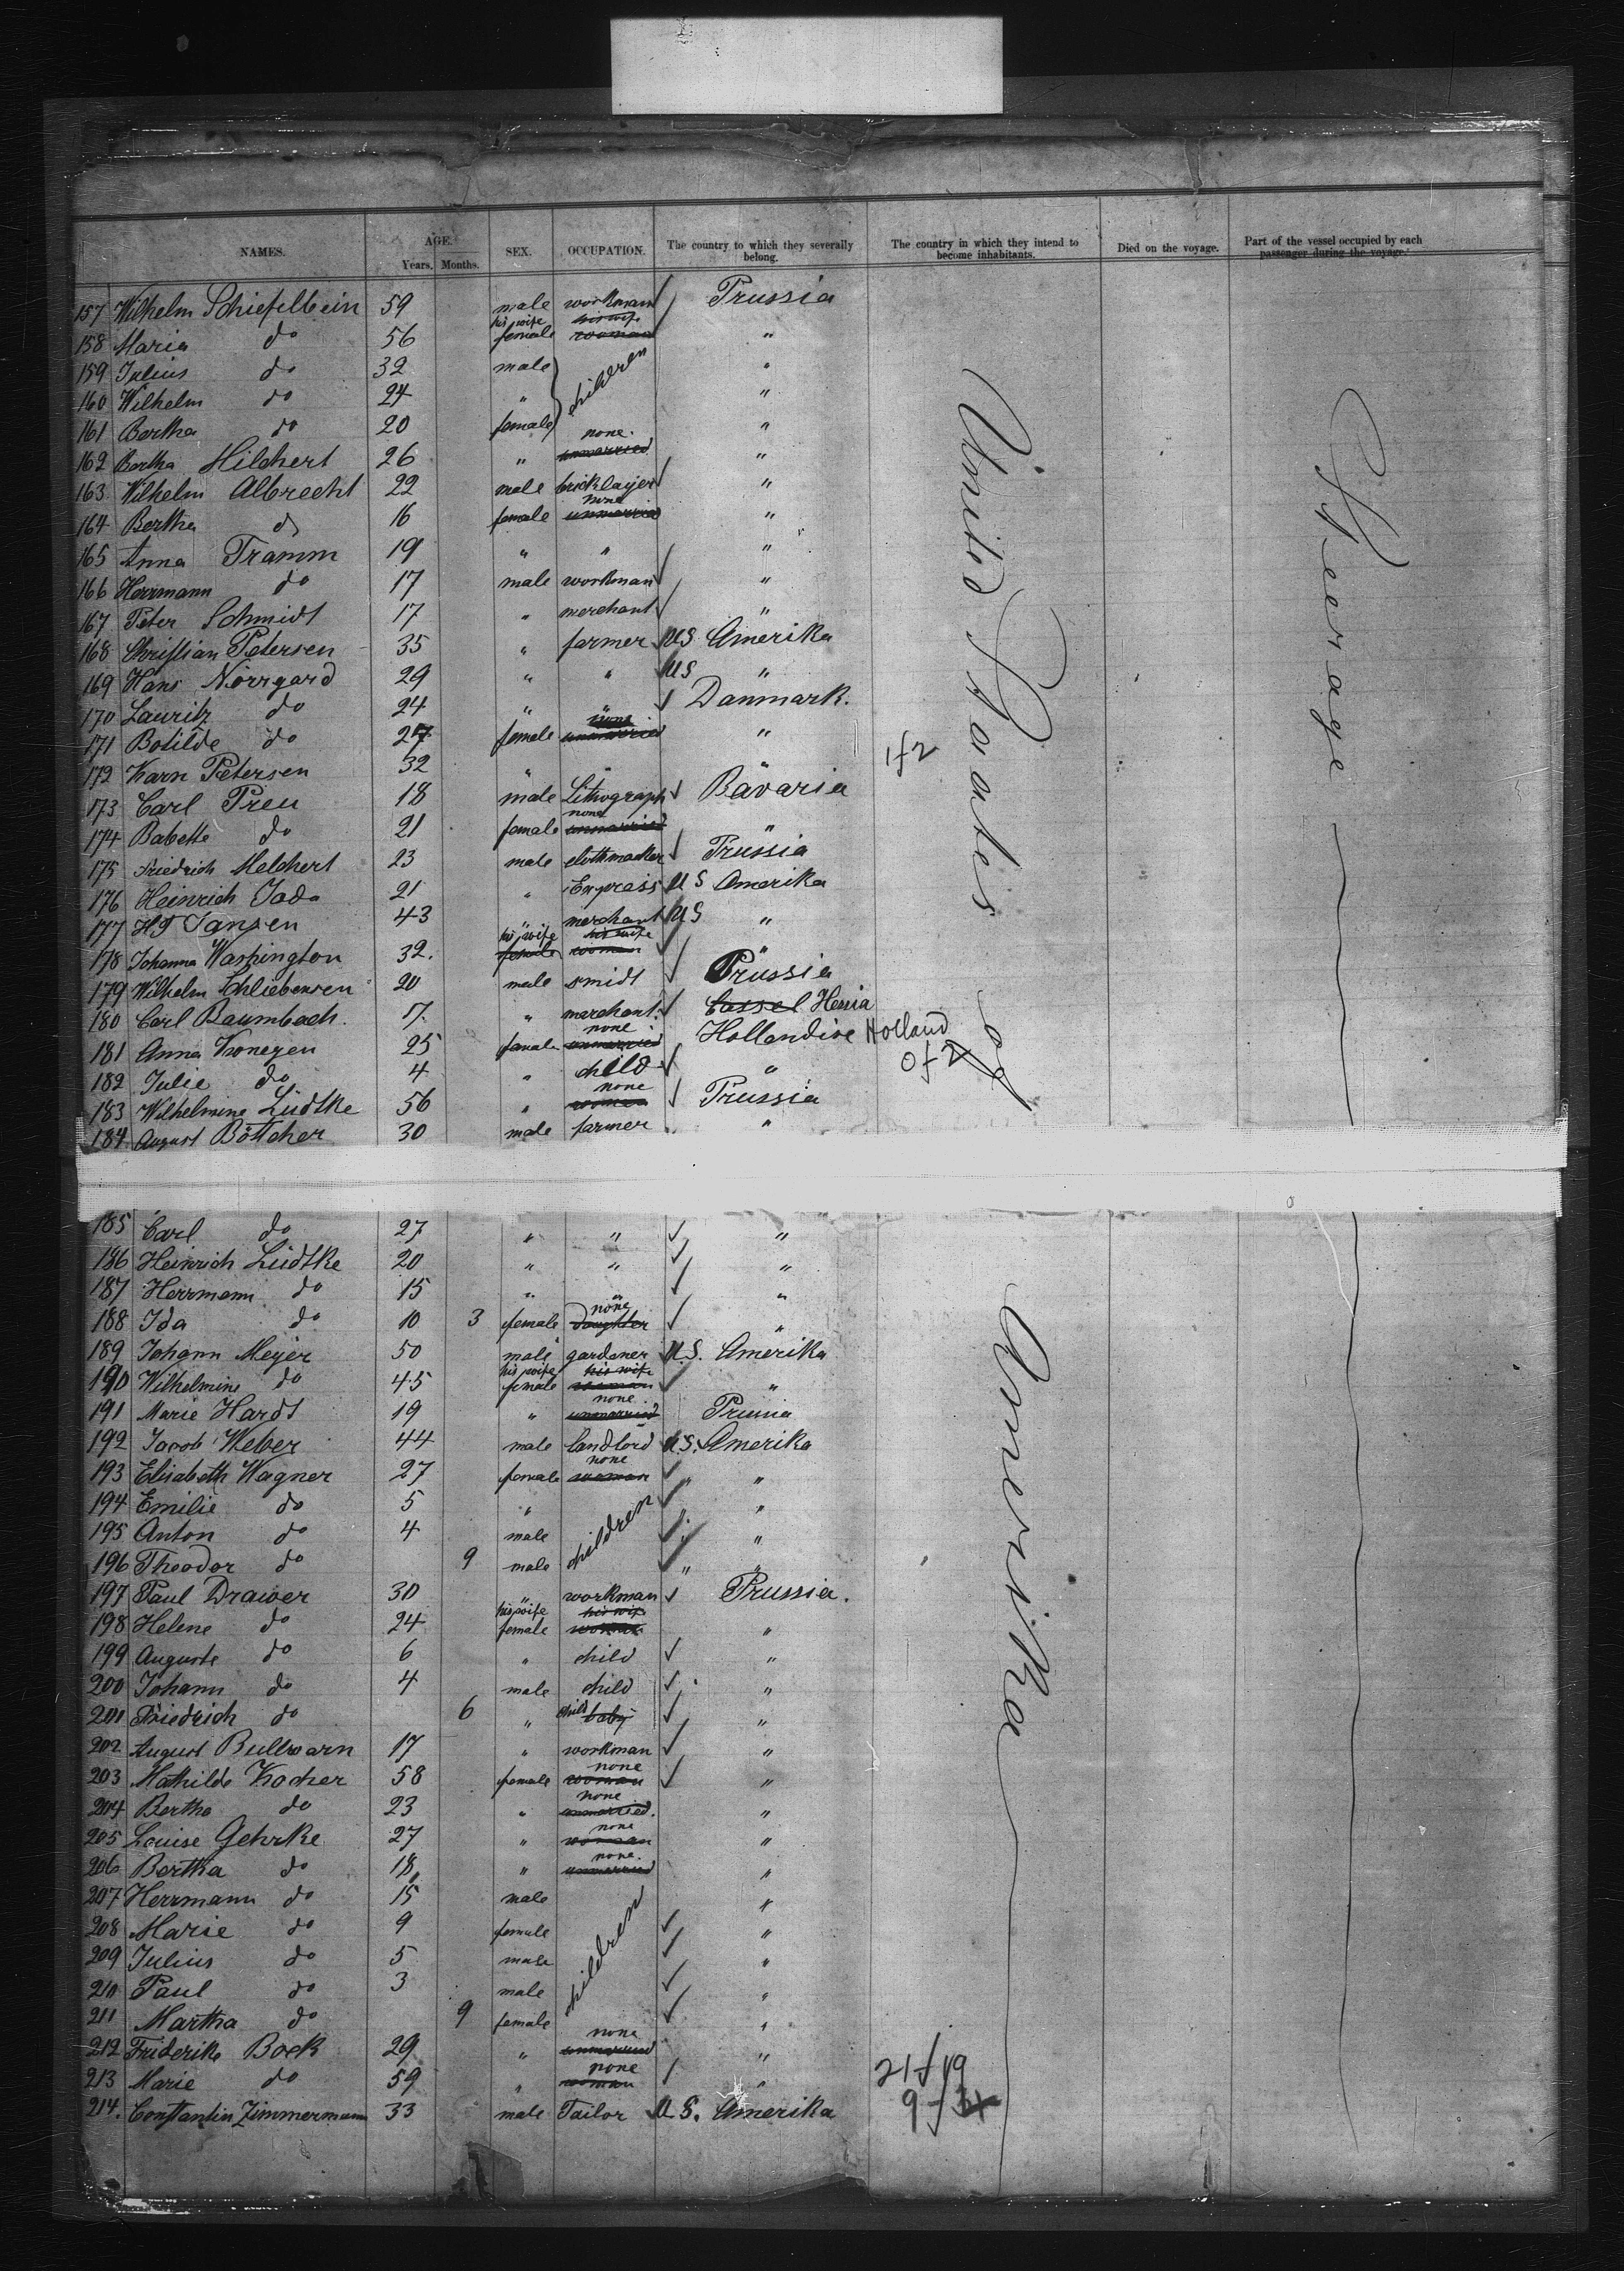 NAMES. AGE. Years. Months. SEX. OCCUPATION. The country to which they severally belong. The country in which they intend to become inhabitants. Died on the voyage. Part of the vessel occupied by each passenger during the voyage.
157 Wilhelm Schiefelbein 59 male workman Prussia
158 Maria do 56 his wife female his wife woman "
159 Julius do 32 male children "
160 Wilhelm do 24 " "
161 Bertha do 20 female "
162 Bertha Hilchert 26 " none. unmarried "
163 Wilhelm Albrecht 22 male bricklayer "
164 Bertha do 16 female none unmarried "
165 Anna Tramm 19 " " "
166 Herrmann do 17 male workman "
167 Peter Schmidt 17 " merchant "
168 Christian Petersen 35 " farmer US Amerika
169 Hans Nörrgard 29 " " US "
170 Lauritz do 24 " " Danmark.
171 Botilde do 27 female none unmarried "
172 Karn Petersen 32 " " " 1f2
173 Carl Preu 18 male Lithograph Bavaria
174 Babette do 21 female none unmarried "
175 Friedrich Melchert 23 male clothmacker Prussia
176 Heinrich Jada 21 " Express US Amerika
177 HP Jansen 43 " merchant US "
178 Johanna Washington 32. his wife female his wife woman "
179 Wilhelm Schliebensen 20 male smidt Prussia
180 Carl Baumbach. 17. " merchant. Cassel Hessia
181 Anna Kronegen 25 female none unmarried Hollandise Holland
182 Julie do 4 " child " 0f2
183 Wilhelmine Lüdtke 56 " none woman Prussia
184 August Böttcher 30 male farmer "
185 Carl do 27 " " "
186 Heinrich Lüdtke 20 " " "
187 Herrmann do 15 " " "
188 Ida do 10 3 female none daughter "
189 Johann Meyer 50 male gardener U.S. Amerika
190 Wilhelmine do 45 his wife female his wife woman "
191 Marie Hardt 19 " none unmarried Prussia
192 Jacob Weber 44 male landlord U.S. Amerika
193 Elisabeth Wagner 27 female none woman " "
194 Emilie do 5 " children " "
195 Anton do 4 male " "
196 Theodor do 9 male " "
197 Paul Drawer 30 " workman Prussia.
198 Helene do 24 his wife female his wife woman "
199 Auguste do 6 " child "
200 Johann do 4 male child "
201 Friedrich do 6 " child baby "
202 August Bullwarn 17 " workman "
203 Mathilde Kocher 58 female none woman "
204 Bertha do 23 " none unmarried. "
205 Louise Gehrke 27 " none woman "
206 Bertha do 18 " none. unmarried "
207 Herrmann do 15 male children "
208 Marie do 9 female "
209 Julius do 5 male "
210 Paul do 3 male "
211 Martha do 9 female "
212 Friderike Bock 29 " none unmarried "
213 Marie do 59 " none woman " 21f19
214. Constantin Zimmermann 33 male Tailor U.S. Amerika 9f34
United States of Amerika
Steerage